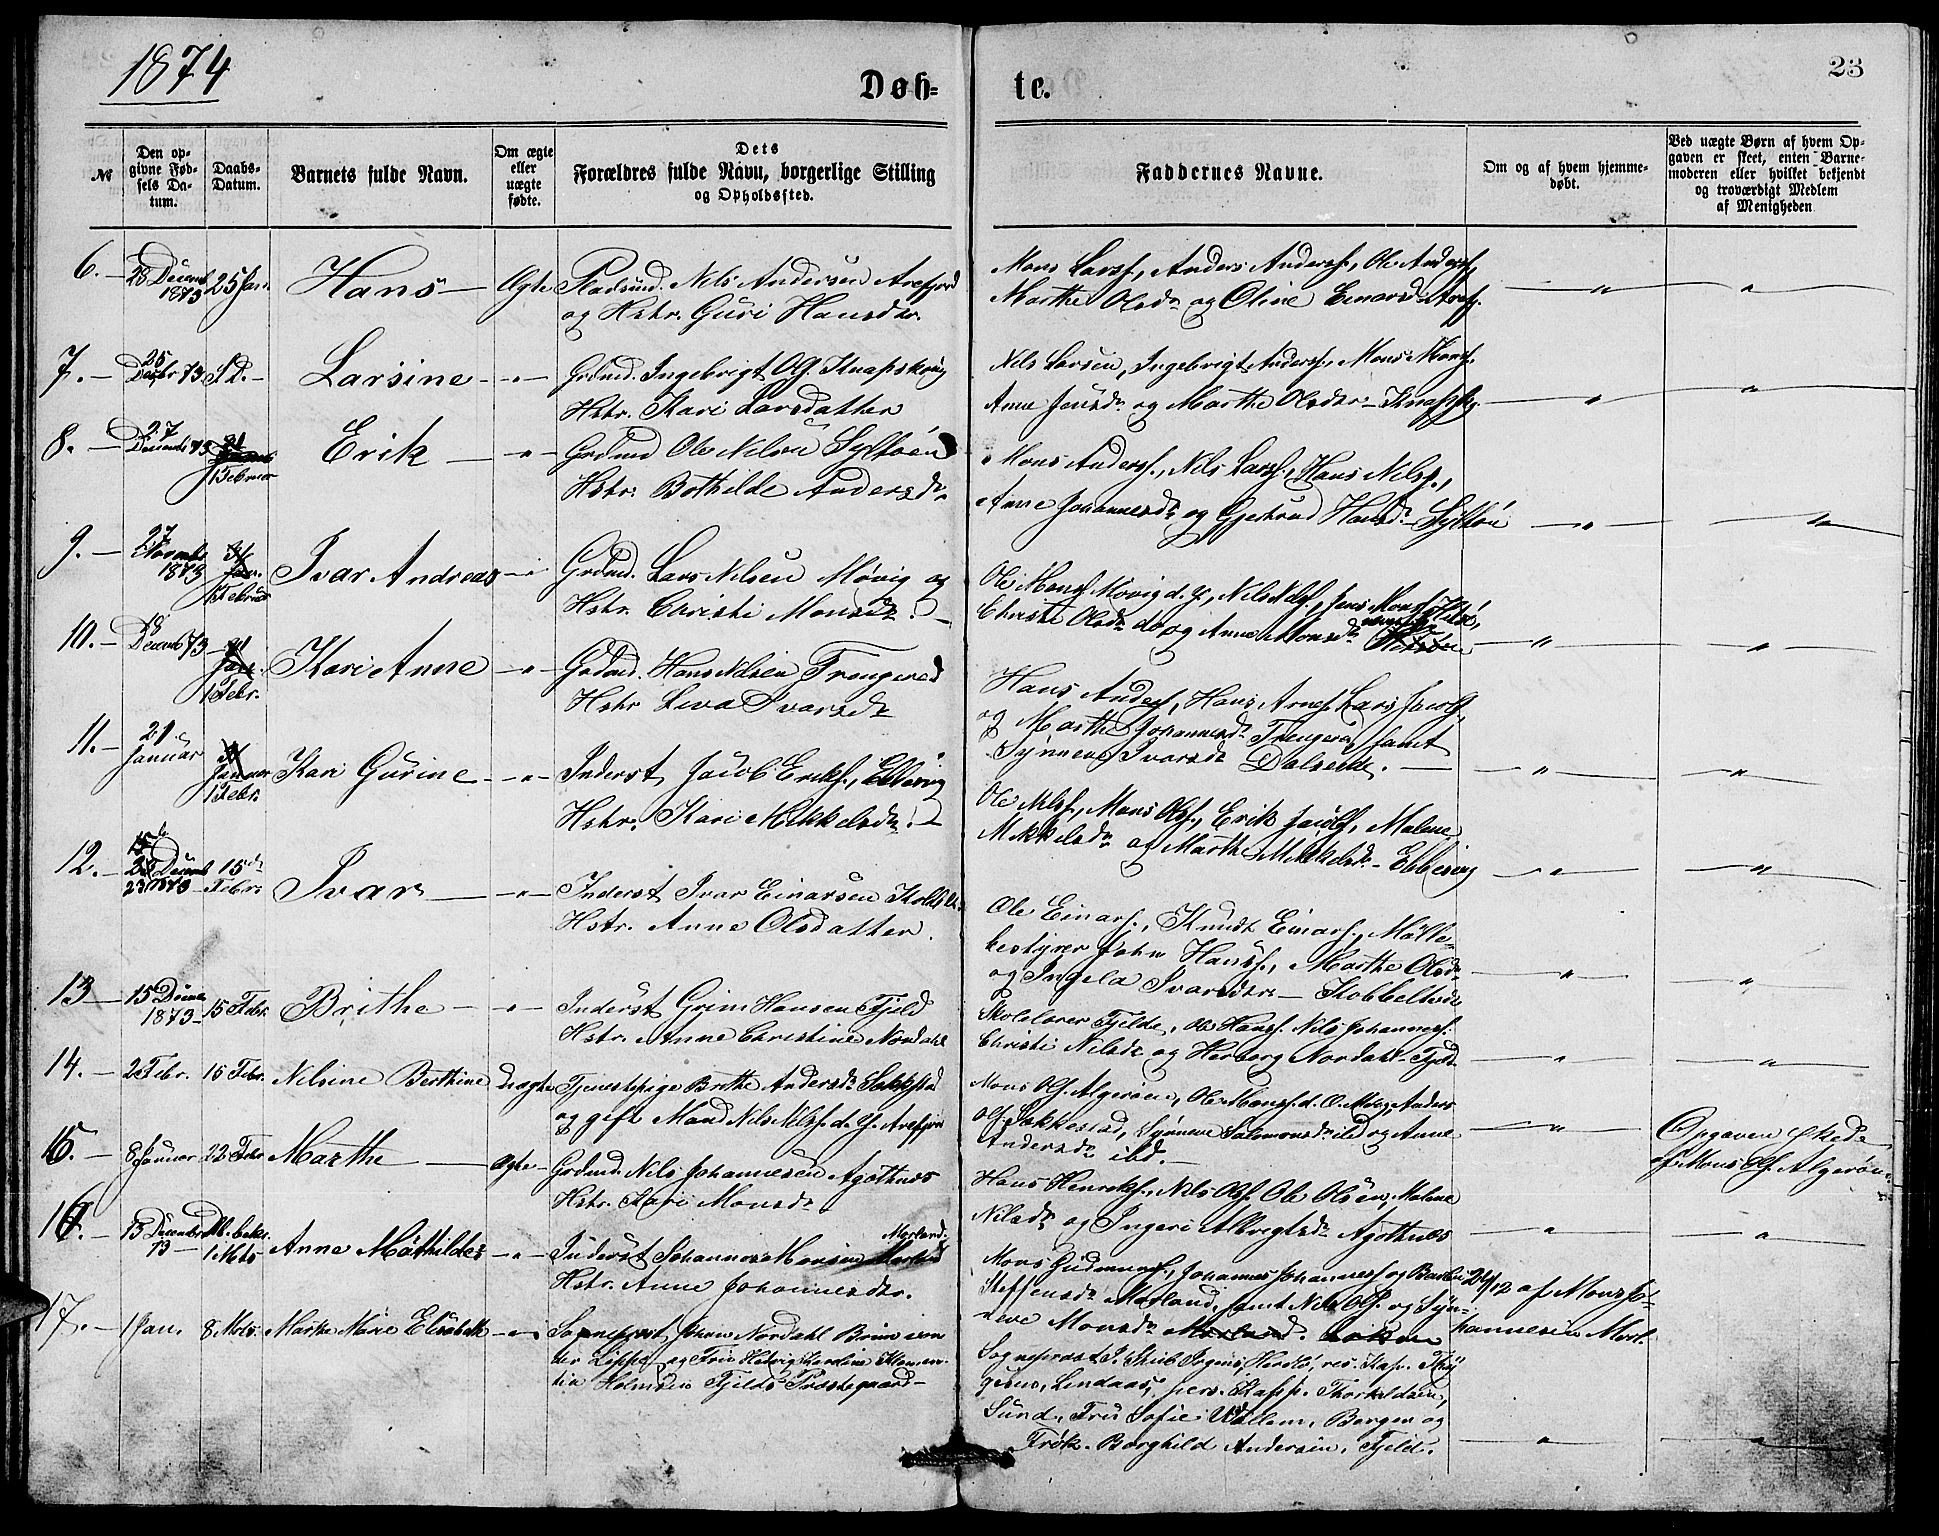 1874
Døb-
te.
23
№
Den op-
givne Fød-
sels Da-
tum.
Daabs-
Datum.
Barnets fulde Navn.
Om ægte
eller
uægte
fødte.
Dets
Forældres fulde Navn, borgerlige Stilling
og Opholdssted.
Faddernes Navne.
Om og af hvem hjemme-
døbt.
Ved uægte Børn af hvem Op-
gaven er skeet, enten Barne-
moderen eller hvilket bekjendt
og troværdigt Medlem
af Menigheden
6. 28 Decemb 1873 25 Jan. Hans Ægte Pladsmd. Nils Andersen Arefjord
og Hstr. Guri Hansdtr.
Mons Larss., Anders Anderss., Ole Anderss.
Marthe Olsdr og Oline Einarsdr Arefj.
7. 25 Decbr 73 S.D. Larsine Grdmd. Ingebrigt Ols. Knapskoug
Hstr. Kari Larsdatter
Nils Larsen, Ingebrigt Anderss., Mons Monss.
Anne Jensdr og Marthe Olsdtr Knapsk.
8. 27 Decemb 73 1 Februar Erik Grdmd Ole Nilsen Syltøen
Hstr. Bothilde Andersdr
Mons Anderss., Nils Larss., Hans Nilss.,
Anne Johannesdr og Gjertrud Hansdr Syltøen
9. 27 Novemb 1873 1 Februar Ivar Andreas Grdmd. Lars Nilsen Møvig og
Hstr. Christi Monsdtr.
Ole Monss Møvig d. y., Nils Nilss., Jens Monss
Christi Olsdr do og Anne Monsdr
10. Decemb 73 1 Febr. Kari Anne Grdmd. Hans Nilsen Trengereid
Hstr Siva Ivarsdtr
Hans Anderss, Hans Arness. Lars Jacobs.
og Marthe Johannesdr Trengereid samt
Synneve Ivarsdr Dalseide.
11. 21 Januar 1 Febr. Kari Gurine Inderst Jacob Eriks., Ebbesvig
Hstr. Kari Mikkelsdtr.
Ole Nilss., Mons Ols., Erik Jacobs., Malene
Mikkelsdr og Marthe Mikkelsdr Ebbesvig
12. 23 1873 15de Febr. Ivar Inderst Ivar Einarsen
Hstr. Anne Olsdatter.
Ole Einars., Knudt Einars., Mølle-
bestyrer John Hanss., Marthe Olsdr
og Ingela Ivarsdtr Skobbeltvedt
13 15 Decmb 1873 15 Febr. Brithe Inderst Grim Hansen Fjeld
Hstr. Anne Christine Nordahl
Skolelærer Fjelde, Ole Hanss. Nils Johanness.
Christi Nilsdr og Herborg Nordahl Fjeld
14. 2 Febr. 15 Febr. Nilsine Berthine Uægte Tjenestepige Brithe Andersdr Sekkestad
og gift Mand Nils Nilss. d. y. Arefjord
Mons Ols. Algerøen, Ole Monss. d. Anders
Ols Sekkestad, Synneve Salomonsdr ibd og Anne
Andersdr ibd.
Opgaven skede
af Mons Ols. Algerøen
15. 8 Januar 22 Febr Marthe Ægte Grdmd. Nils Johannesen Agothnes
Hstr. Kari Monsdr
Hans Henriks., Nils Ols. Ole Olsen, Malene
Nilsdr og Ingeri Albregtsdr Agothnes
16. 13 Decembr 73 Alb. bekr. 1 Mrts Anne Mathilde Inderst Johannes Monsen Morland
Hstr. Anne Johannesdtr.
Mons Gudmunds., Johannes Johanness og Barbro
Steffensdr Morland, samt Nils Ols. og Syn-
neve Monsdr
21/12 af Mons Jo-
hannesen Morl.
17. 1 Jan. 8 Mrts. Marthe Marie Elisabeth Sogneprest Johan Nordahl Brun von
der Lippe og Fru Hedvig Kardine Klemen-
tia Holmsen Fjelds Prestegaard
Sogneprost J. Skib Irgens, Herdlø, res. Kap.
Lindaas, pers. Kapp. Thorkildsen,
Sund, Fru Sofie Wallem, Bergen og
Frøk. Borghild Andersen, Fjeld.